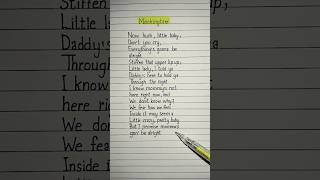 Mockingbird
Now hush, little baby,
Don't you cry,
Everything's gonna be
alright
Stiffen that upper lip up,
Little lady, I told ya
Daddy's here to hold ya
Through the night
I know mommy's not
here right now, and
We don't know why?
We fear how we feel
Inside it may seem a
Little crazy, pretty baby
But I promise momma's
gon' be alright